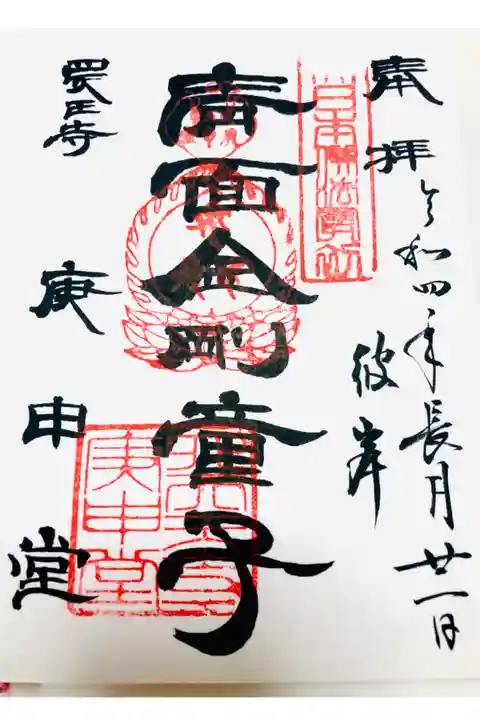 奉拝
令和四年長月廿一日
彼岸
日本佛法最初
青面金剛童子
四天王寺
庚申堂
庚申堂